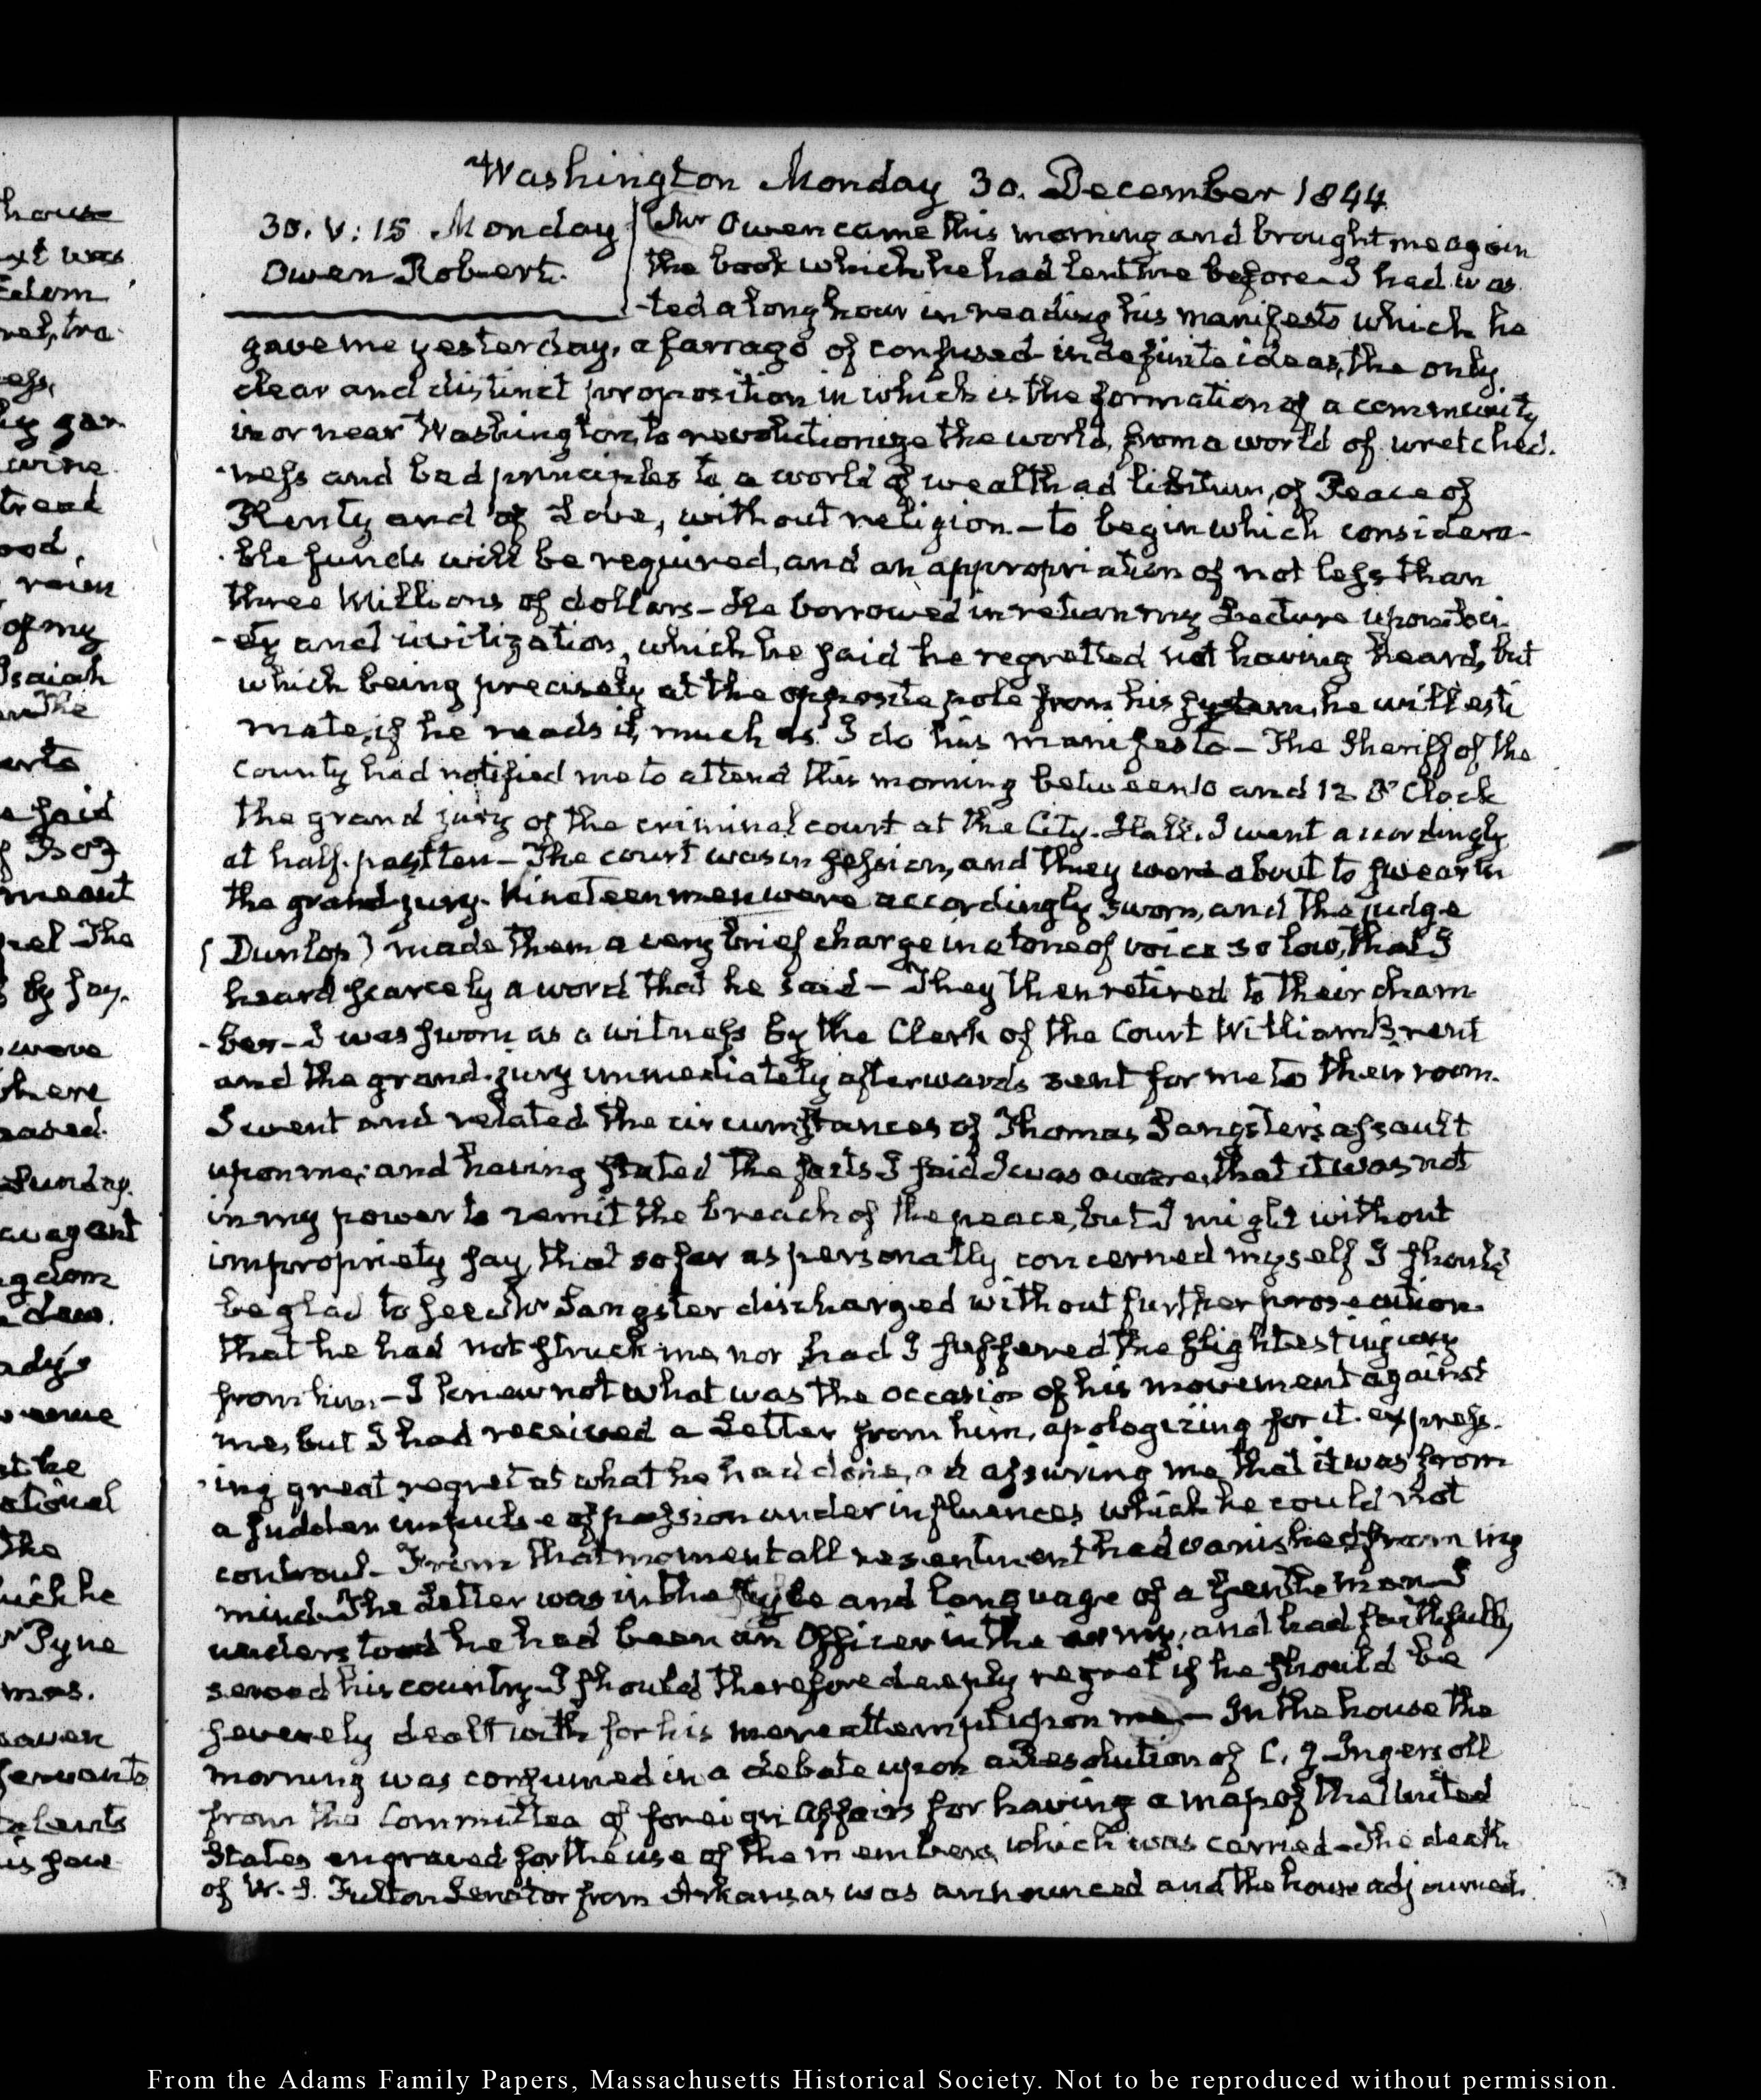 Washington Monday 30. December 1844
30. V: 15 Monday
Owen Robert.
Mr Owen came this morning and brought me again
the book which he had lent me before I had was
-ted a long hour in reading his manifesto which he
gave me yesterday, a farrago of confused indefinite ideas, the only
clear and distinct proposition in which is the formation of a community
in or near Washington, to revolutionize the world, from a world of wretched.
-ness and bad principles to a world of wealth ad libitum, of Peace of
Plenty and of Love, without religion.— to begin which considera-
-ble funds will be required, and an appropriation of not less than
three Millions of dollars— He borrowed in return my Lecture upon Soci
-ety and civilization, which he said he regretted not having heard, but
which being precisely at the opposite pole from his system, he will esti
mate, if he reads it, much as I do his manifesto— The Sheriff of the
County had notified me to attend this morning between 10 and 12 O'Clock
the grand jury of the criminal court at the City-Hall. I went accordingly
at half-past ten— The court was in session, and they were about to swear in
the grand-jury. Nineteen men were accordingly sworn, and the judge
(Dunlop) made them a very brief charge in a tone of voice so low, that I
heard scarcely a word that he said— They then retired to their cham
-ber— I was sworn as a witness by the Clerk of the Court William Brent
and the grand-jury immediately afterwards sent for me to their room.
I went and related the circumstances of Thomas Sangster's assault
upon me; and having stated the facts I said I was aware, that it was not
in my power to remit the breach of the peace, but I might without
impropriety say, that so far as personally concerned myself I should
be glad to see Mr Sangster discharged without further prosecution.
that he had not struck me, nor had I suffered the slightest injury
from him— I knew not what was the occasion of his movement against
me, but I had received a Letter from him, apologizing for it. express-
-ing great regret at what he had done, and assuring me that it was from
a sudden impulse of passion under influences which he could not
controul— From that moment all resentment had vanished from my
mind. The Letter was in the style and language of a Gentleman I
understood he had been an Officer in the army, and had faithfully
served his country. I should therefore deeply regret if he should be
severely dealt with for his mere attempt upon me— In the house the
morning was consumed in a debate upon a Resolution of C. J. Ingersoll
from the Committee of foreign Affairs for having a map of the United
States engraved for the use of the members, which was carried— The death
of W. S. Fulton Senator from Arkansas was announced and the house adjourned.
house
was
wine
rain
of my
Isaiah
The
said
meant
The
by say.
were
there
Sunday.
the
which he
Mr Pyne
servants
talents
From the Adams Family Papers, Massachusetts Historical Society. Not to be reproduced without permission.